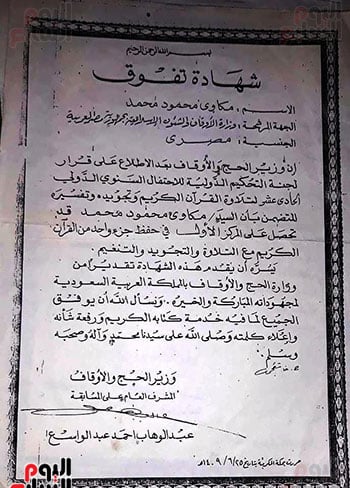 اليوم السابع
بسم الله الرحمن الرحيم
شهادة تفوق
الاسم : مكاوى محمود محمد
الجهة المرشحة : وزارة الأوقاف والشئون الإسلامية جمهورية مصر العربية
الجنسية : مصرى
إن وزير الحج والأوقاف بعد الاطلاع على قرار
لجنة التحكيم الدولية للاحتفال السنوي الدولي
الحادي عشر لتلاوة القرآن الكريم وتجويده وتفسيره
المتضمن بأن السيد / مكاوى محمود محمد قد
تحصل على المركز الأول في حفظ جزء واحد من القرآن
الكريم مع التلاوة والتجويد والتنغيم
يسره أن يقدم هذه الشهادة تقديراً من
وزارة الحج والأوقاف بالمملكة العربية السعودية
لمجهوداته المباركة والخيره . ونسأل الله أن يوفق
الجميع لما فيه خدمة كتابه الكريم ورفعة شأنه
وإعلاء كلمته وصلى الله على سيدنا محمد وآله وصحبه
وسلم
وزير الحج والأوقاف
المشرف العام على المسابقة
عبد الوهاب أحمد عبد الواسع
حررت بمكة المكرمة بتاريخ ١٤٠٩/٦/٢٥هـ
اليوم السابع